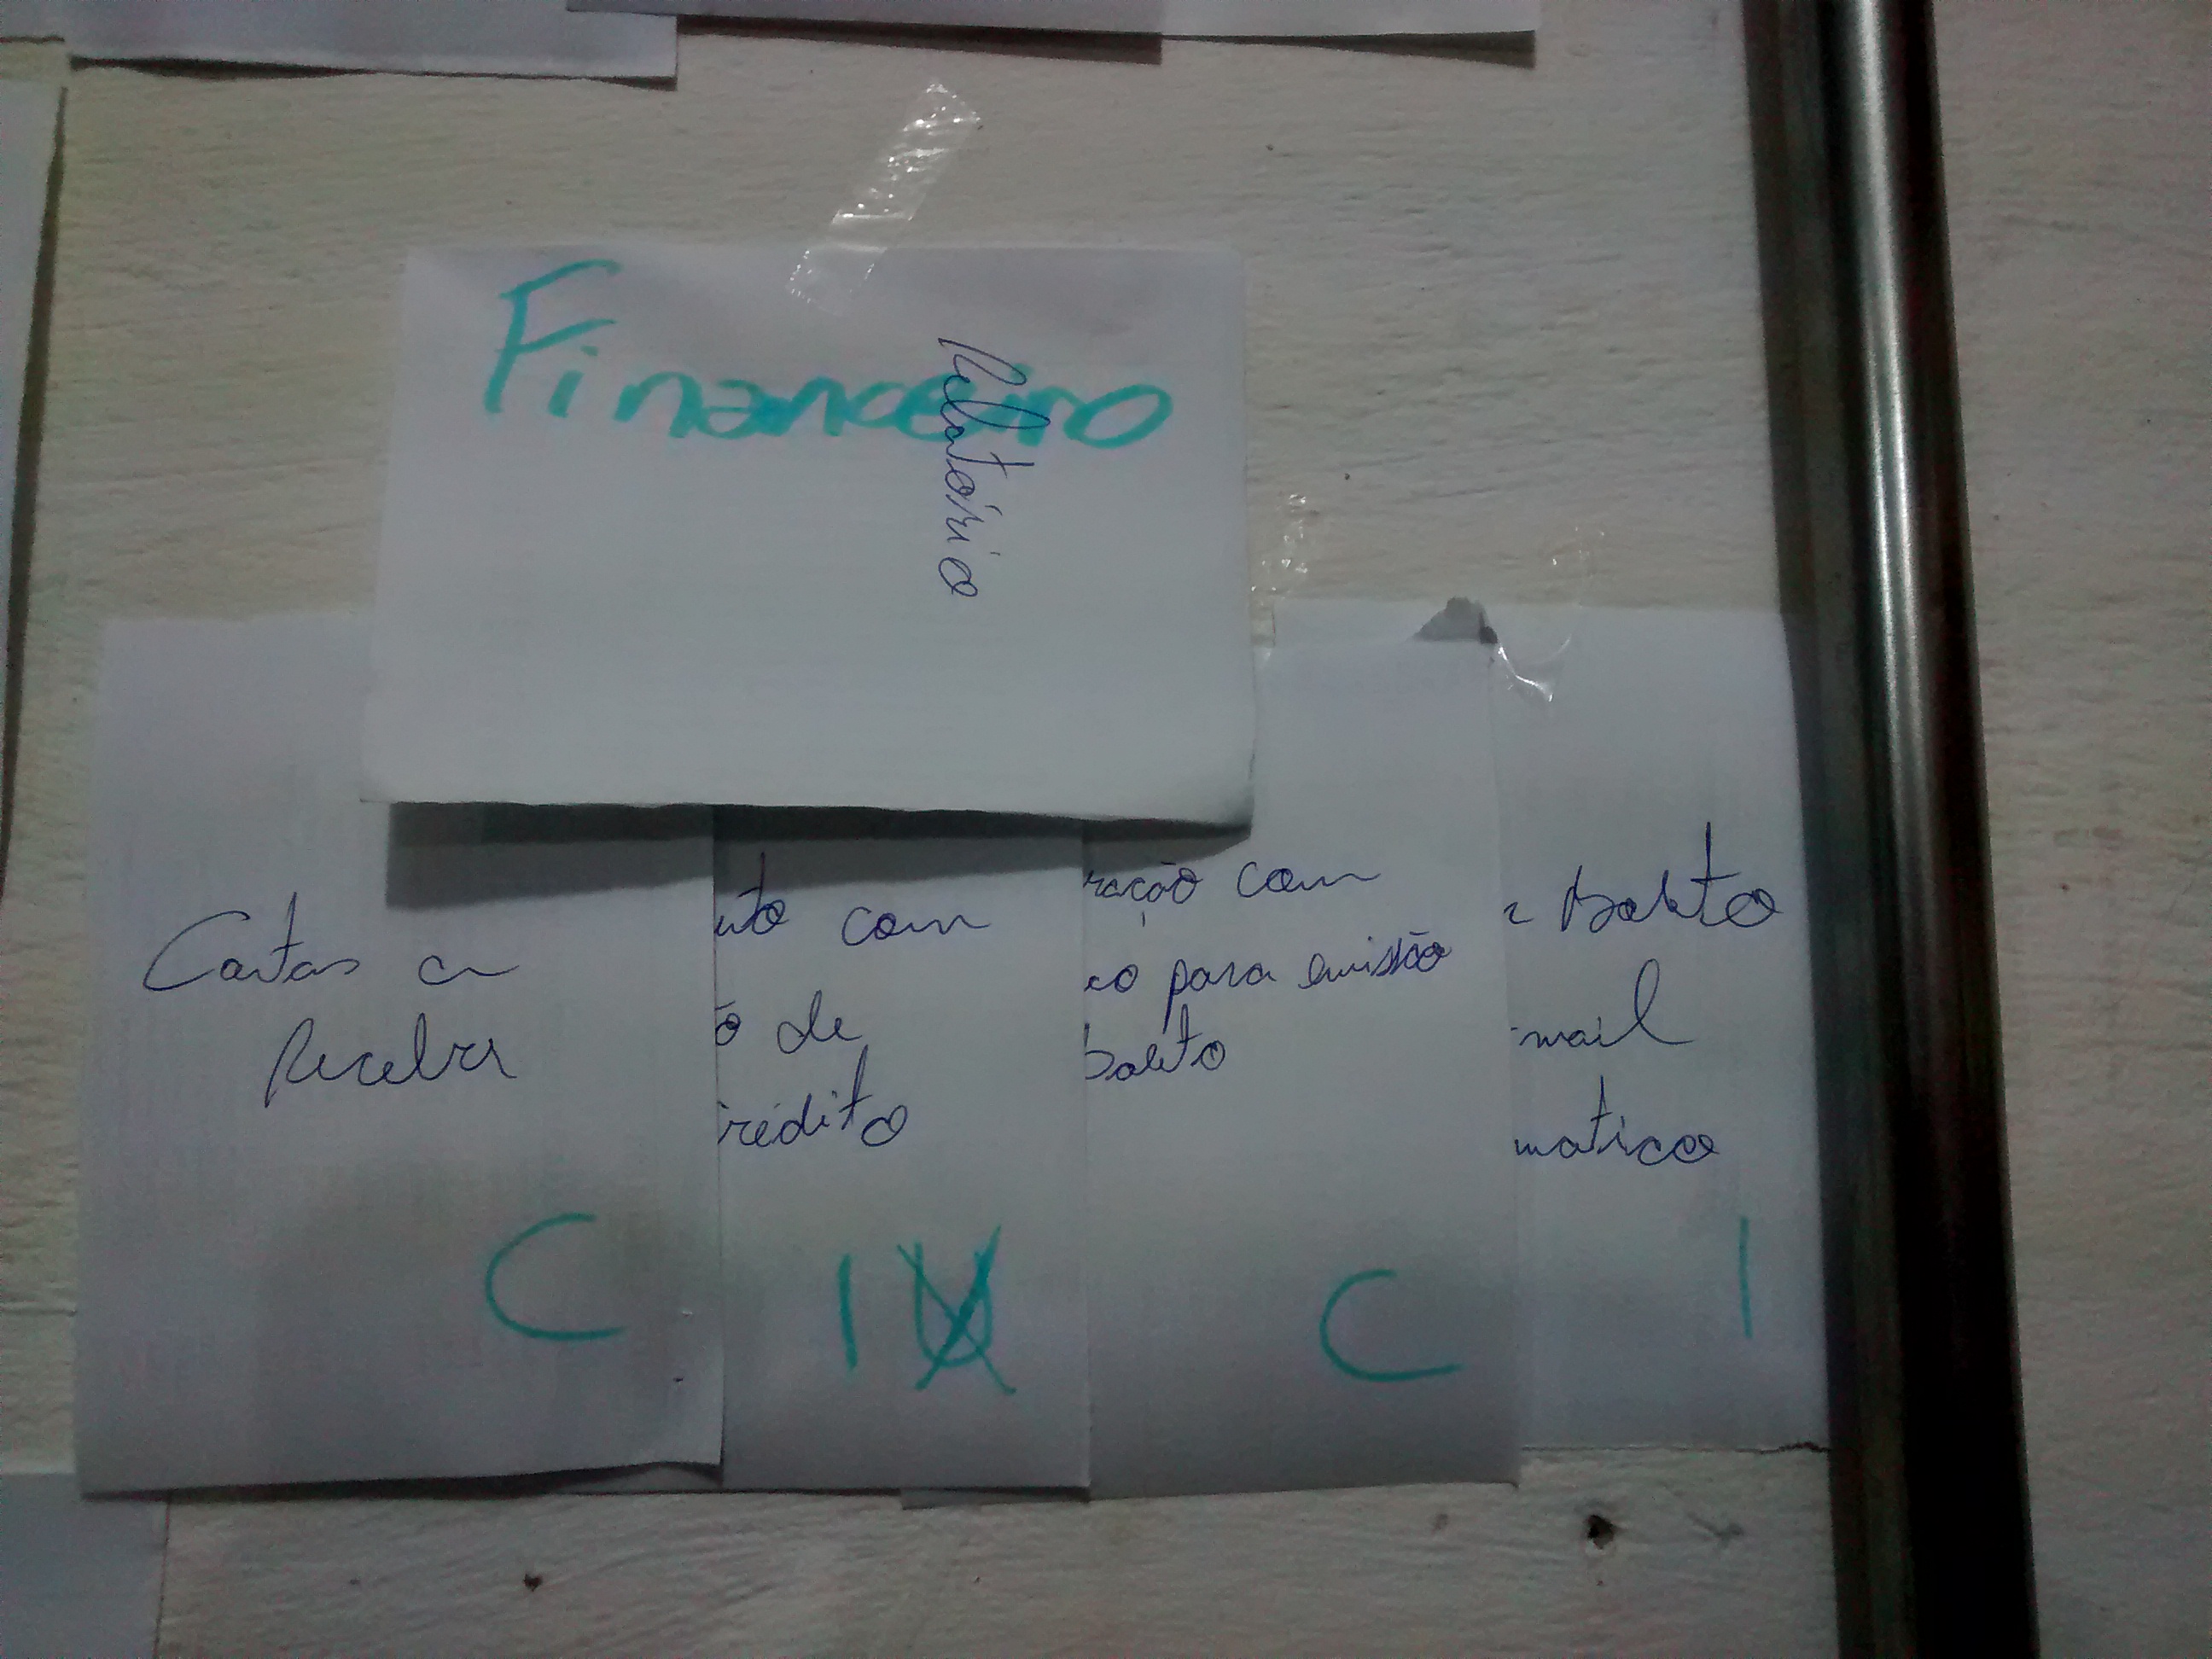 Financeiro
Relatório
Contas a
Receber
C
nto com
o de
crédito
I
ração com
co para emissão
boleto
C
r Boleto
-mail
matico
I